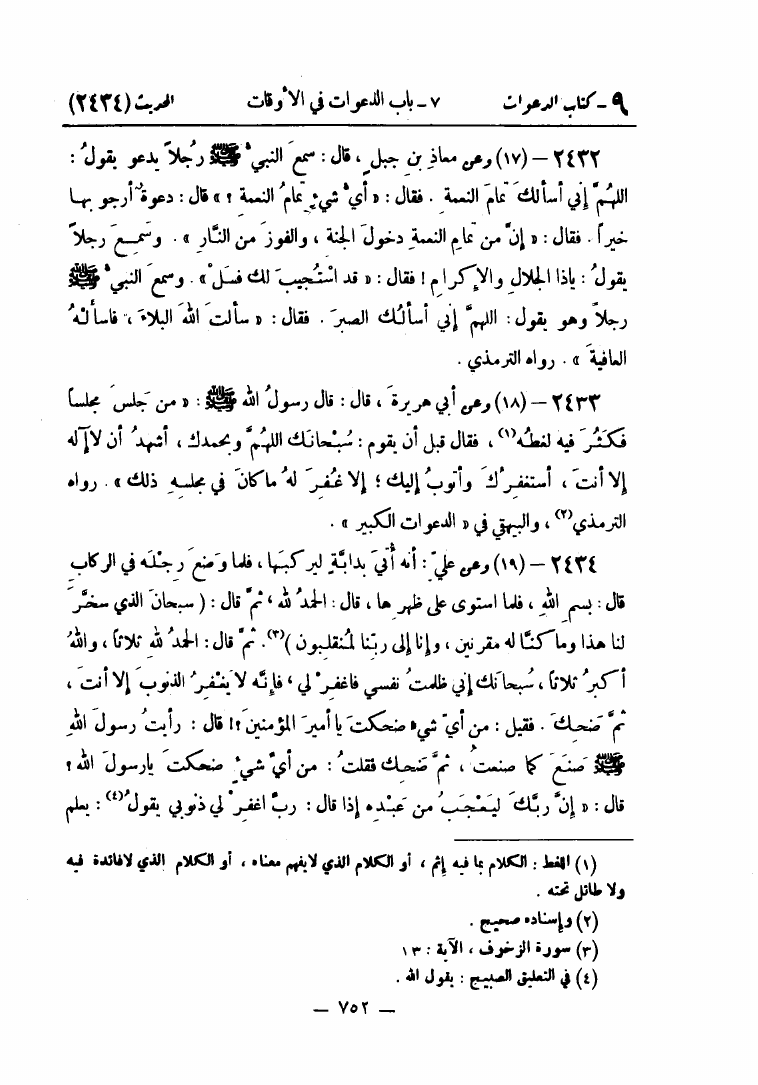 ٩ - كتاب الدعوات ٧ - باب الدعوات في الأوقات الحديث (٢٤٣٤)
٢٤٣٢ – (١٧) وعن معاذِ بنِ جبلٍ ، قال : سمعَ النبيُّ ﷺ رجُلاً يدعو يقولُ :
اللهُمَّ إني أسألكَ تمامَ النعمة . فقال : « أيُّ شيءٍ تمامُ النعمةِ ؟ » قال : دعوةٌ أرجو بها
خيراً . فقال : « إنَّ من تمامِ النعمةِ دخولَ الجنة ، والفوزَ من النَّارِ » . وسَمِعَ رجلاً
يقولُ : ياذا الجلالِ والإكرامِ ! فقال : « قد اسْتُجيبَ لك فسَلْ » . وسمعَ النبيُّ ﷺ
رجلاً وهو يقول : اللهمَّ إني أسألُك الصبرَ . فقال : « سألتَ اللهَ البلاءَ ، فاسألهُ
العافيةَ » . رواه الترمذي .
٢٤٣٣ – (١٨) وعن أبي هريرةَ ، قال : قال رسولُ الله ﷺ : « من جَلسَ مجلساً
فكَثُرَ فيه لغطُه(١) ، فقال قبل أن يقومَ : سُبْحانَك اللهُمَّ وبحمدك ، أشهدُ أن لا إله
إلا أنتَ ، أستغفِرُكَ وأتوبُ إليك ؛ إلا غُفِرَ لهُ ما كانَ في مجلسِهِ ذلك » . رواه
الترمذي(٢) ، والبيهقي في « الدعوات الكبير » .
٢٤٣٤ – (١٩) وعن عليّ : أنه أُتيَ بدابَّةٍ ليركبَها ، فلما وَضعَ رِجْلَه في الركابِ
قال : بسمِ اللهِ ، فلما استوى على ظهرِها ، قال : الحمدُ لله ، ثمَّ قال : ( سبحانَ الذي سخَّرَ
لنا هذا وما كنَّا له مقرنين ، وإنا إلى ربِّنا لمُنقلِبون )(٣) . ثمَّ قال : الحمدُ للهِ ثلاثاً ، واللهُ
أكبرُ ثلاثاً ، سُبحانَك إني ظلمتُ نفسي فاغفِرْ لي ، فإنَّه لا يَغفِرُ الذنوبَ إلا أنتَ ،
ثمَّ ضَحِكَ . فقيل : من أيِّ شيءٍ ضحكتَ يا أميرَ المؤمنينَ ؟! قال : رأيتُ رسولَ اللهِ
ﷺ صَنَعَ كما صنعتُ ، ثمَّ ضَحِكَ فقلتُ : من أيِّ شيءٍ ضحكتَ يارسولَ الله ؟
قال : « إنَّ ربَّكَ ليَعْجَبُ من عَبْدِه إذا قال : ربِّ اغفِرْ لي ذنوبي يقولُ(٤) : يعلم
(١) اللغط : الكلام بما فيه إثم ، أو الكلام الذي لايفهم معناه ، أو الكلام الذي لافائدة فيه
ولا طائل تحته .
(٢) وإسناده صحيح .
(٣) سورة الزخرف ، الآية : ١٣
(٤) في التعليق الصبيح : يقول الله .
– ٧٥٢ –